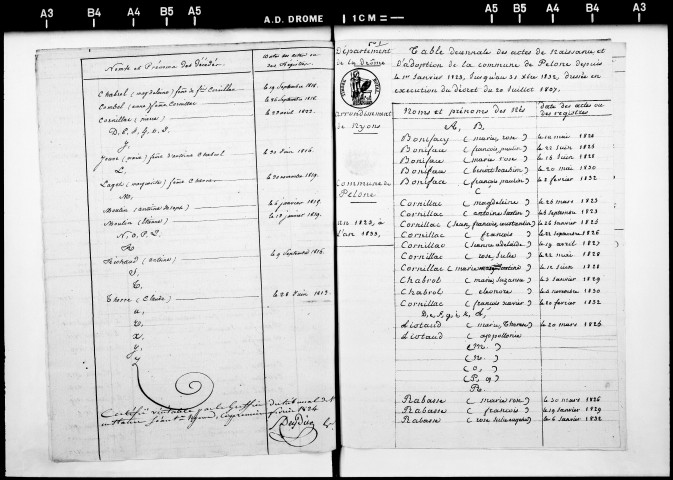 A3 B4 A4 B5 A5 A.D. DROME 1CM= A5 B5 A4 B4 A3
Noms et Prénoms des Décédés
Dates des actes ou des Registres
Chabrol (magdelaine) feme de fs Cornillac le 19 Septembre 1816.
Combel (anne) feme Cornillac le 26 Septembre 1816.
Cornillac (pierre) 1822.
D, E, F, G, H, I,
J,
Jeune (marie) feme d'antoine Chabrol le 30 Juin 1816.
L,
Laget (marguerite) feme Chevas le 30 novembre 1819.
M,
Moulin (antoine Joseph) le 6 janvier 1819.
Moulin (Etienne) le 10 janvier 1819.
N, O, P, Q,
R,
Richaud (antoine) le 9 Septembre 1816.
S,
T,
Thorre (Claude) le 28 Juin 1813.
U,
V,
X,
Y,
Z
Certifié véritable par le Greffier du tribunal de
1824
Département de la Drôme
arrondissement de Nyons
Commune de Pelone
an 1823, à l'an 1833,
Table décennale des actes de Naissance et
d'adoption de la commune de Pelone depuis
le 1er Janvier 1823, Jusqu'au 31 Xbre 1832, dressée en
exécution du décret du 20 Juillet 1807.
Noms et prénoms des Nés
date des actes ou des registres
A, B,
Boniface (marie, rose) le 12 mai 1825
Boniface (françois, paulin) le 22 Juin 1826
Boniface (marie rose) le 16 Juin 1828
Boniface (benoit toussaint) le 20 mai 1830
Boniface (françois paulin) le 2 fevrier 1832
C
Cornillac (magdeleine) le 26 mars 1823
Cornillac (antoine bastien) le 6 Septembre 1823
Cornillac (Jean, françois, constantin) le 26 Janvier 1825
Cornillac (françois) le 22 Septembre 1826
Cornillac (Jeanne adelaïde) le 19 avril 1827
Cornillac (rose, Julie) le 22 mai 1828
Cornillac (marie) le 12 Juin 1828
Chabrol (marie, suzanne) le 3 Janvier 1829
Chabrol (eleonore) le 6 novembre 1830
Cornillac (françois xavier) le 20 fevrier 1832
D, E, F, g, i, k, L,
Liotaud (marie, Therese) le 20 mars 1826
Liotaud (appollonie
(M.)
(N.)
(O,)
(P, q)
R.
Rabasse (marie rose) le 30 mars 1826
Rabasse (françois) le 19 Janvier 1829
Rabasse (rose Julie eugenie) le 6 Janvier 1832
A3 B4 A4 B5 A5 A5 B5 A4 B4 A3